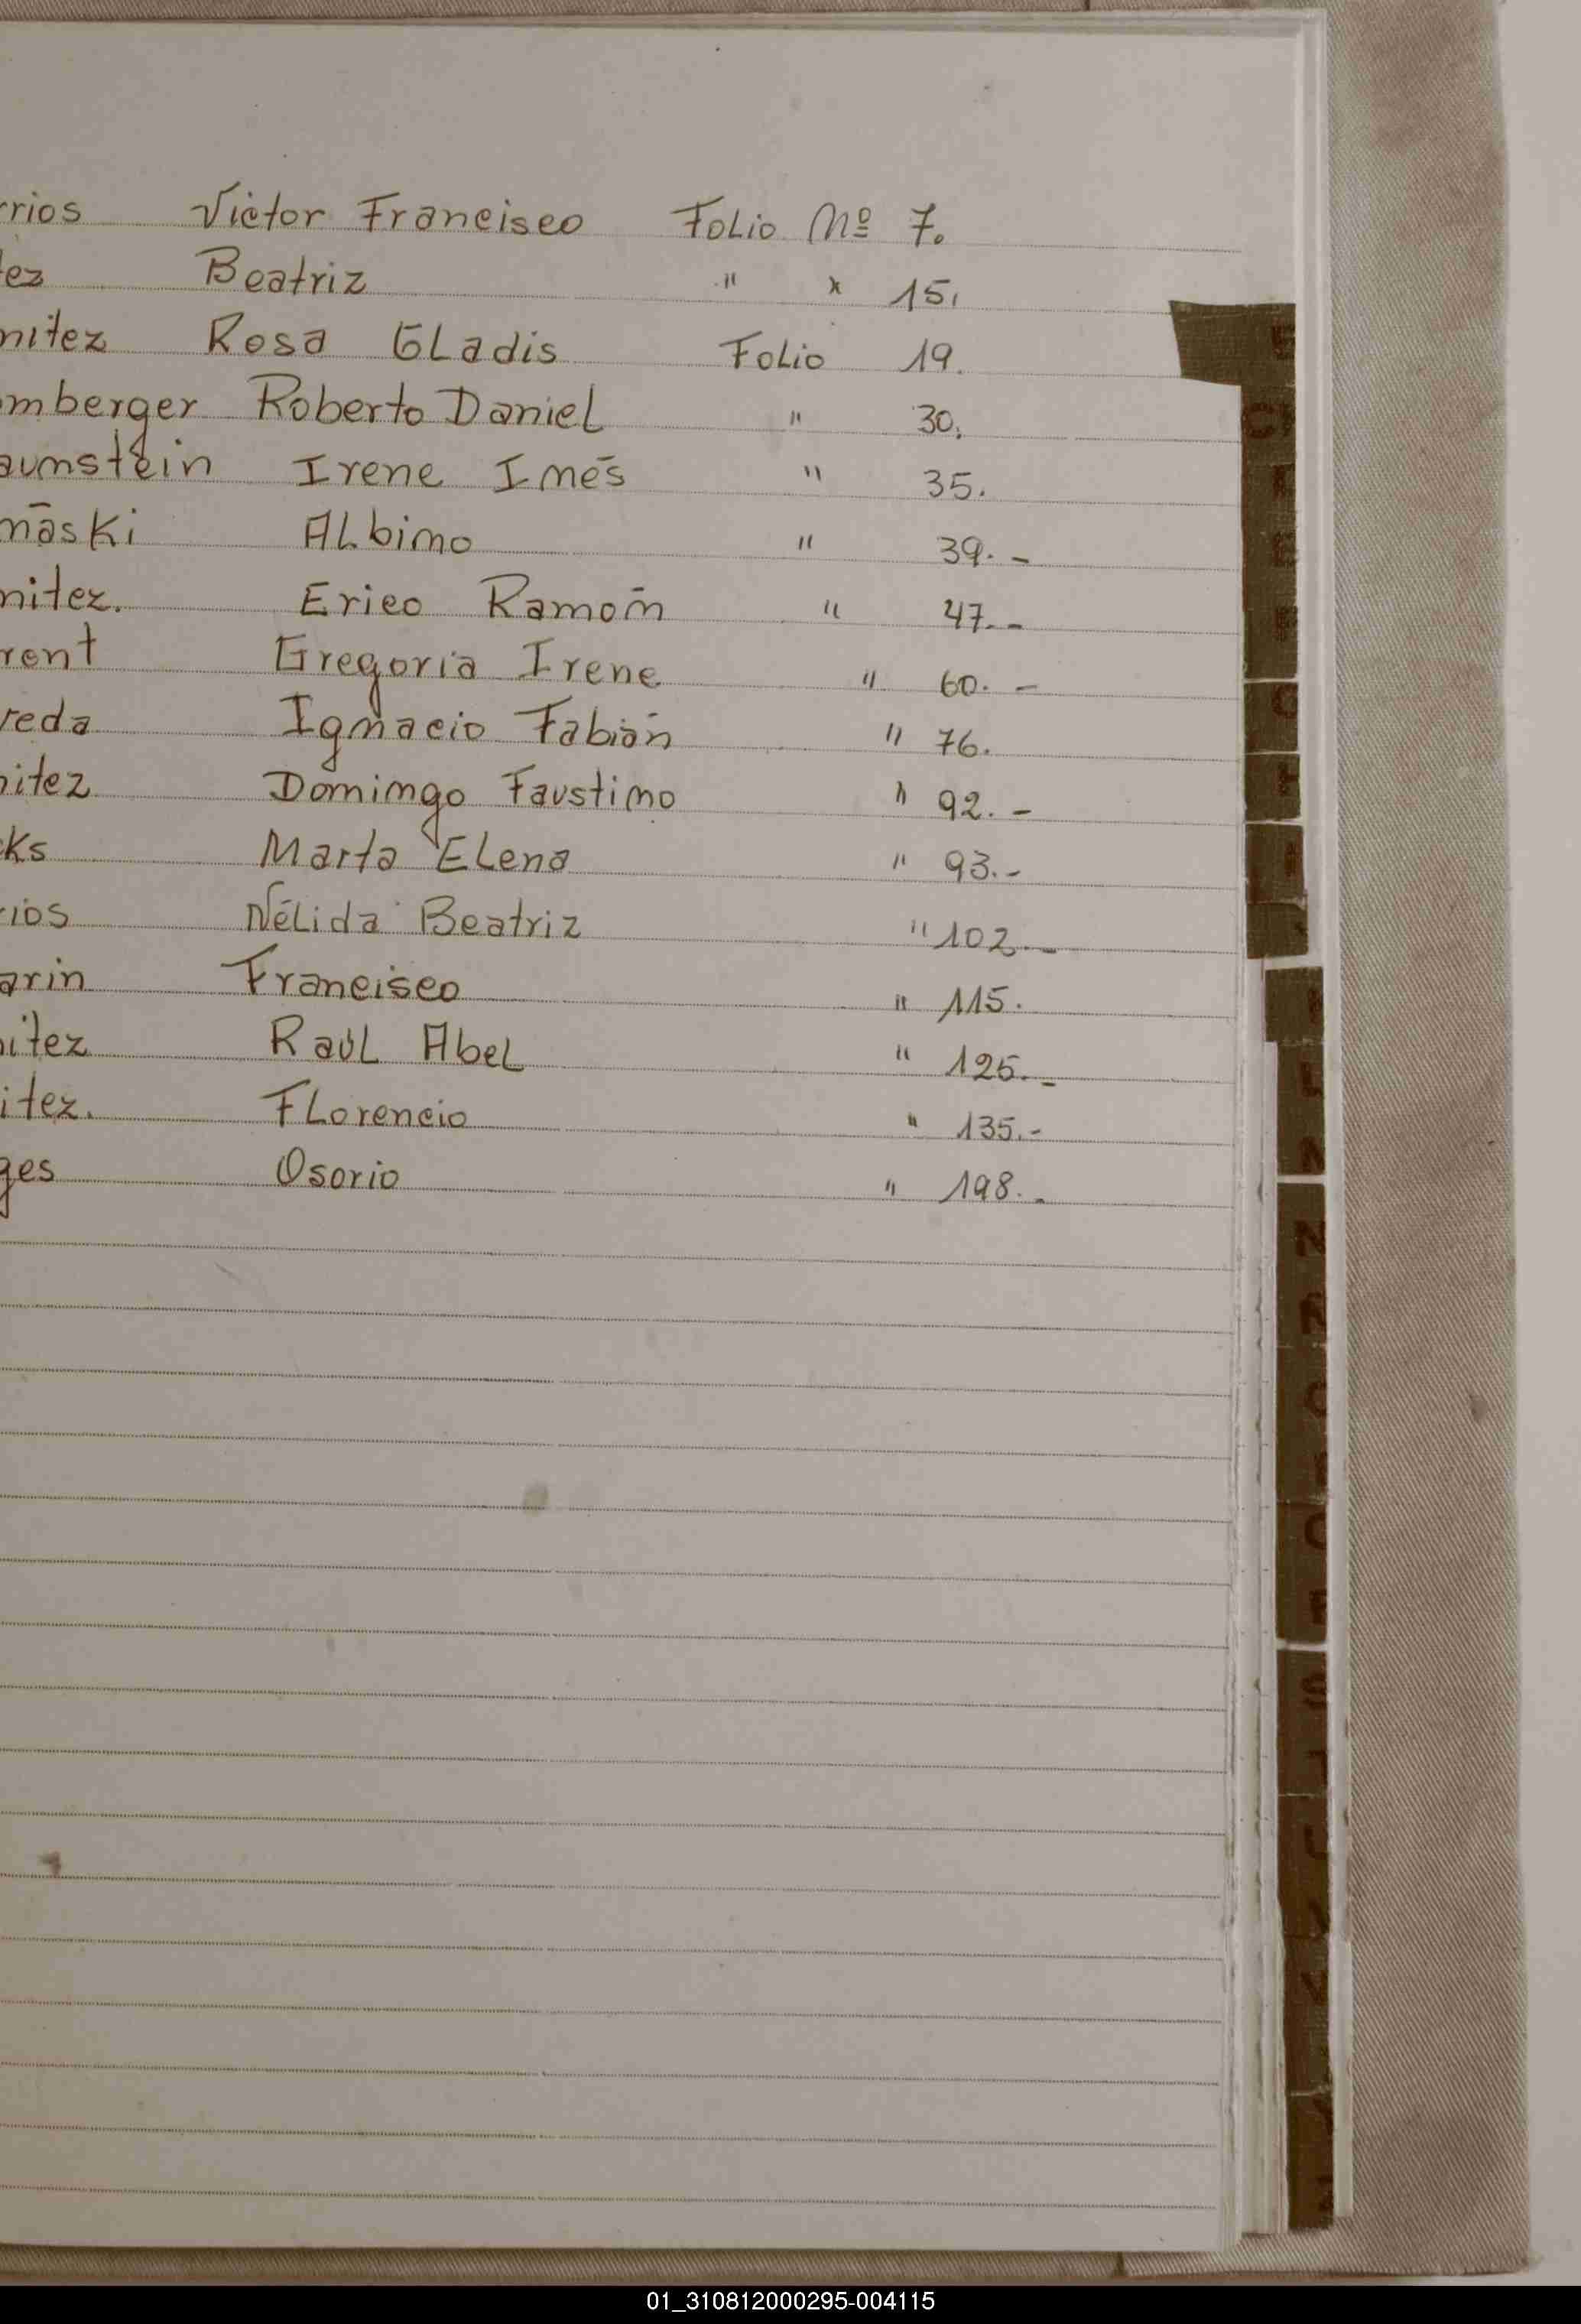 rrios Victor Francisco Folio Nº 7.
tez Beatriz " " 15.
nitez Rosa Gladis Folio 19.
mberger Roberto Daniel " 30.
aumstein Irene Inés " 35.
máski Albino " 39.-
nitez. Erico Ramón " 47.-
rent Gregoria Irene " 60.-
reda Ignacio Fabián " 76.
nitez Domingo Faustino " 92.-
cks Marta Elena " 93.-
rios Nélida Beatriz " 102.-
arin Francisco " 115.
nitez Raúl Abel " 125.-
itez. Florencio " 135.-
ges Osorio " 198.-
01_310812000295-004115